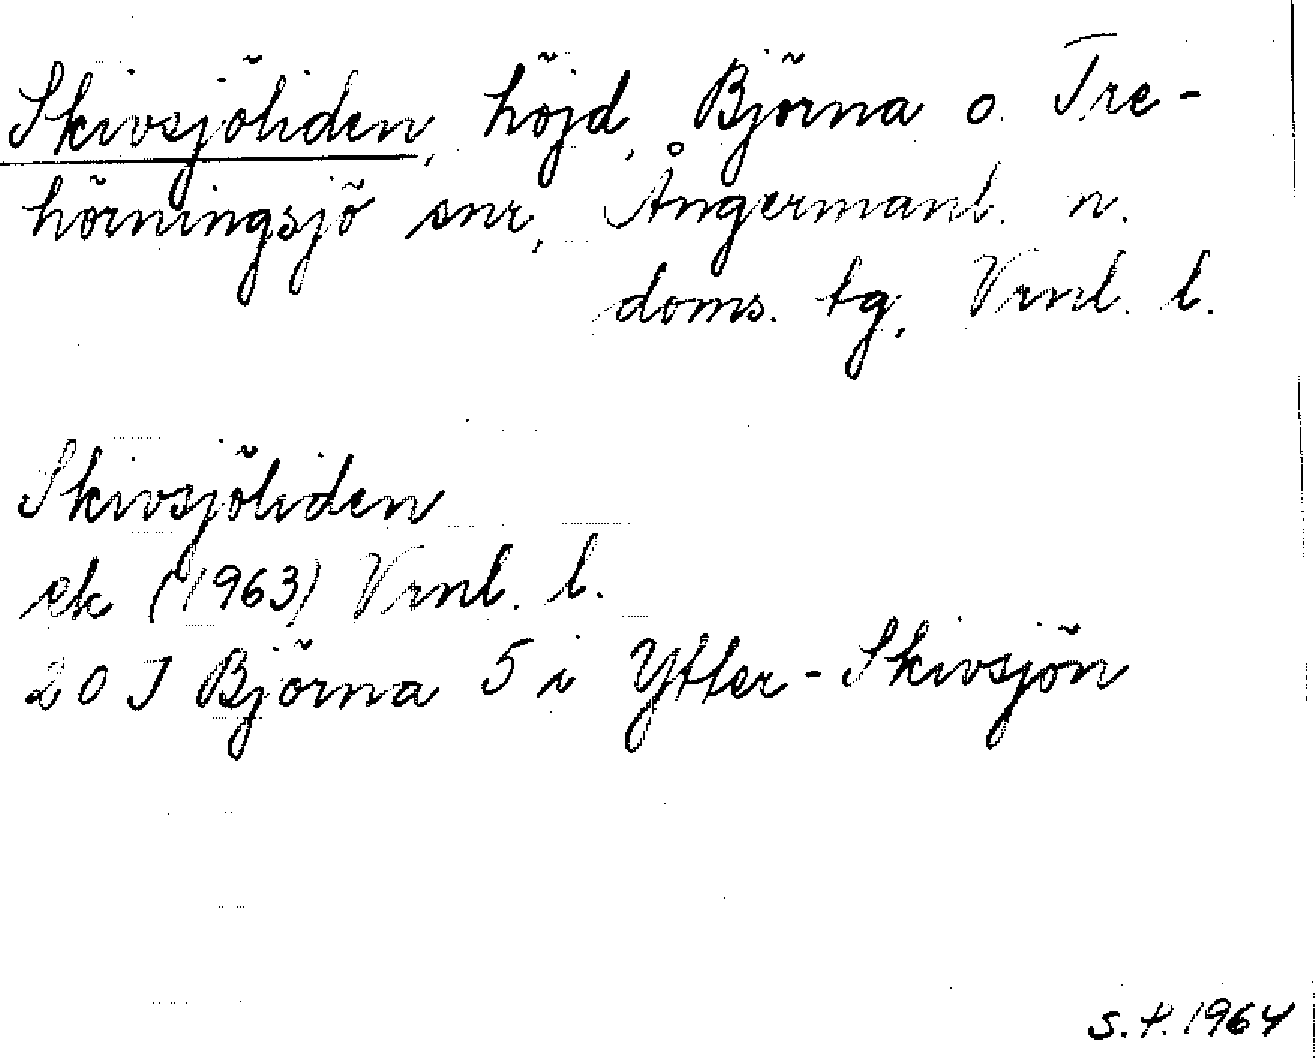 Skivsjöliden, höjd, Björna o. Tre-
hörningsjö snr, Ångermanl. n.
doms. tg, Vrnl. l.
Skivsjöliden
ek (1963) Vrnl. l.
20 J Björna 5 i Ytter-Skivsjön
S.F. 1964